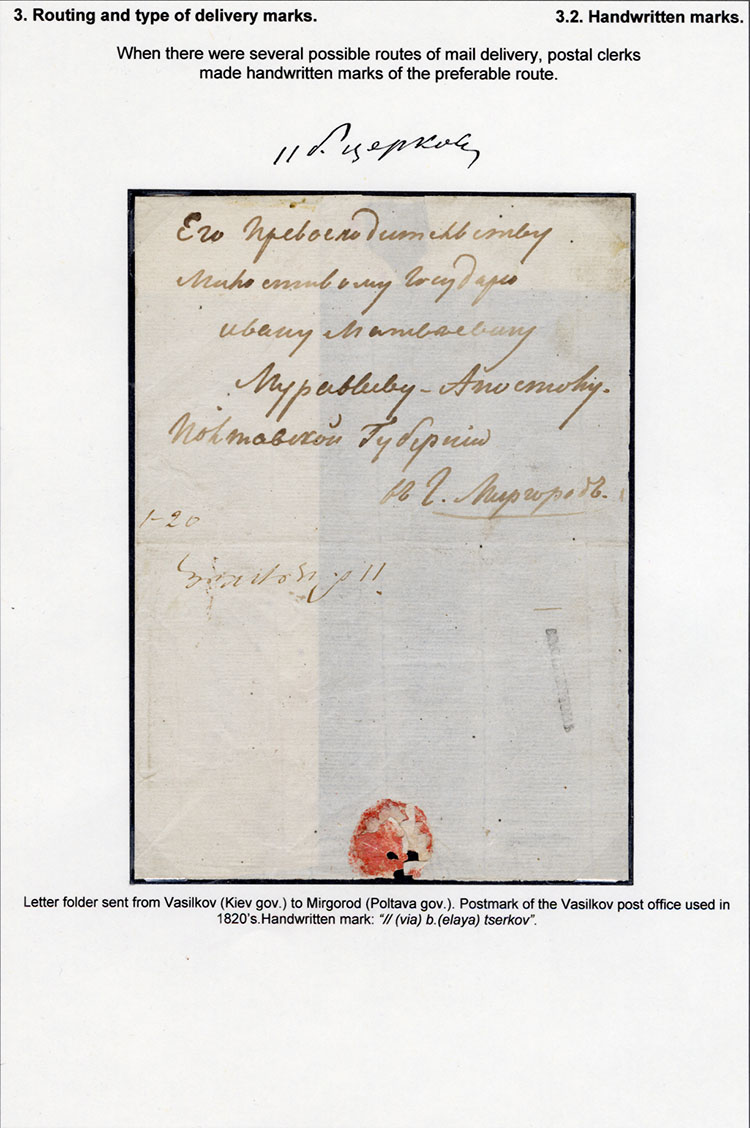 3. Routing and type of delivery marks.
3.2. Handwritten marks.
When there were several possible routes of mail delivery, postal clerks
made handwritten marks of the preferable route.
// б. церковь
Его Превосходительству
Милостивому Государю
Ивану Матвѣевичу
Муравьеву-Апостолу.
Полтавской Губерніи
въ Г. Миргородъ.
1-20
Letter folder sent from Vasilkov (Kiev gov.) to Mirgorod (Poltava gov.). Postmark of the Vasilkov post office used in
1820's.Handwritten mark: “// (via) b.(elaya) tserkov”.